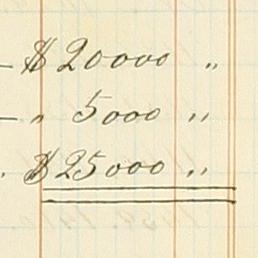 — $ 20000 "
— " 5000 "
. $ 25000 "